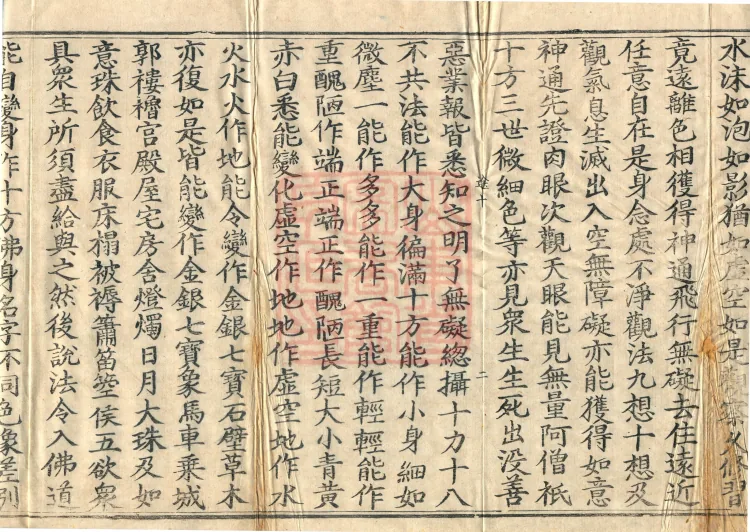 水沫如泡如影猶如虛空如是觀察久修習
竟遠離色相獲得神通飛行無礙去住遠近
任意自在是身念處不淨觀法九想十想及
觀氣息生滅出入空無障礙亦能獲得如意
神通先證肉眼次觀天眼能見無量阿僧祇
十方三世微細色等亦見眾生生死出沒善
惡業報皆悉知之明了無礙總攝十力十八
不共法能作大身徧滿十方能作小身細如
微塵一能作多多能作一重能作輕輕能作
重醜陋作端正端正作醜陋長短大小青黃
赤白悉能變化虛空作地地作虛空地作水
火水火作地能令變作金銀七寶石壁草木
亦復如是皆能變作金銀七寶象馬車乘城
郭樓櫓宮殿屋宅房舍燈燭日月大珠及如
意珠飲食衣服床榻被褥簫笛箜侯五欲眾
具眾生所須盡給與之然後說法令入佛道
能自變身作十方佛身名字不同色象差別